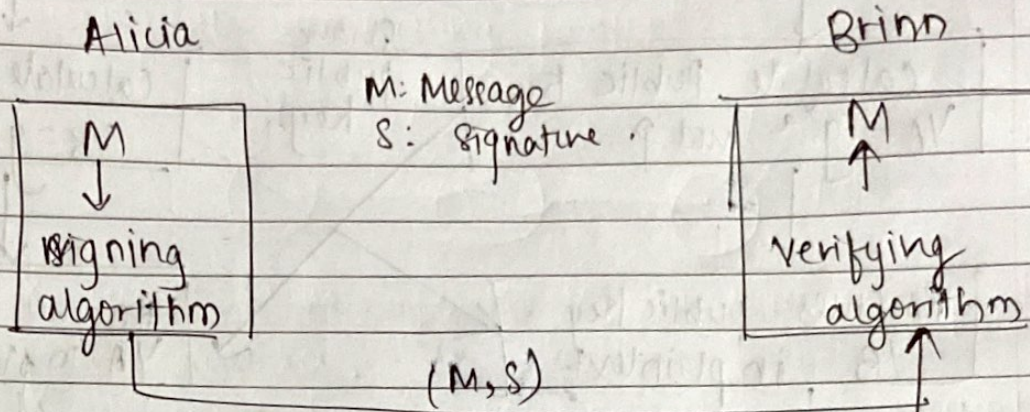 Alicia
Brinn
M: Message
S: Signature
M
M
signing
algorithm
verifying
algorithm
(M, S)